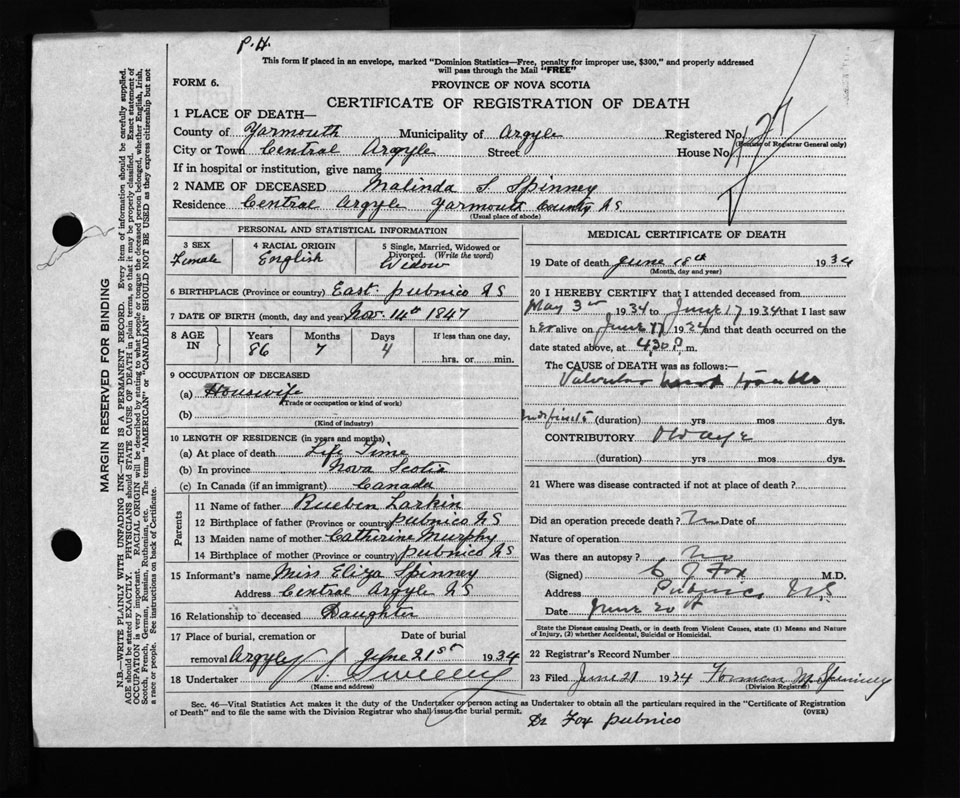 P.H.
This form if placed in an envelope, marked "Dominion Statistics—Free, penalty for improper use, $300," and properly addressed
will pass through the Mail "FREE"
FORM 6.
PROVINCE OF NOVA SCOTIA
CERTIFICATE OF REGISTRATION OF DEATH
1 PLACE OF DEATH—
County of Yarmouth Municipality of Argyle Registered No.
(For use of Registrar General only)
City or Town Central Argyle Street House No.
If in hospital or institution, give name
2 NAME OF DECEASED Malinda S. Spinney
Residence Central Argyle Yarmouth County NS
(Usual place of abode)
PERSONAL AND STATISTICAL INFORMATION
3 SEX
Female
4 RACIAL ORIGIN
English
5 Single, Married, Widowed or
Divorced. (Write the word)
Widow
6 BIRTHPLACE (Province or country) East Pubnico NS
7 DATE OF BIRTH (month, day and year) Nov. 14th 1847
8 AGE IN
Years Months Days If less than one day,
86 7 4 hrs. or min.
9 OCCUPATION OF DECEASED
(a) Houswife
(Trade or occupation or kind of work)
(b)
(Kind of industry)
10 LENGTH OF RESIDENCE (in years and months)
(a) At place of death Life Time
(b) In province Nova Scotia
(c) In Canada (if an immigrant) Canada
Parents
11 Name of father Rueben Larkin
12 Birthplace of father (Province or country) Pubnico NS
13 Maiden name of mother Catherine Murphy
14 Birthplace of mother (Province or country) Pubnico NS
15 Informant's name Miss Eliza Spinney
Address Central Argyle NS
16 Relationship to deceased Daughter
17 Place of burial, cremation or Date of burial
removal Argyle June 21st 1934
18 Undertaker Sweeney
(Name and address)
MEDICAL CERTIFICATE OF DEATH
19 Date of death June 18th 1934
(Month, day and year)
20 I HEREBY CERTIFY that I attended deceased from
May 3rd 1934 to June 17 1934 that I last saw
her alive on June 17 1934 and that death occurred on
date stated above, at 4,30 P. m.
The CAUSE OF DEATH was as follows:—
Valvular heart trouble
Indefinite (duration) yrs mos dys.
CONTRIBUTORY Old age
(duration) yrs mos dys.
21 Where was disease contracted if not at place of death?
Did an operation precede death? No Date of
Nature of operation
Was there an autopsy? No
(Signed) C J Fox M.D.
Address Pubnico N.S
Date June 20th
State the Disease causing Death, or in death from Violent Causes, state (1) Means and Nature
of Injury, (2) whether Accidental, Suicidal or Homicidal.
22 Registrar's Record Number
23 Filed June 21 1934 Spinney
(Division Registrar)
Sec. 46—Vital Statistics Act makes it the duty of the Undertaker or person acting as Undertaker to obtain all the particulars required in the "Certificate of Registration
of Death" and to file the same with the Division Registrar who shall issue the burial permit. (OVER)
Dr Fox Pubnico
MARGIN RESERVED FOR BINDING
N.B.—WRITE PLAINLY WITH UNFADING INK—THIS IS A PERMANENT RECORD. Every item of information should be carefully supplied.
AGE should be stated EXACTLY. PHYSICIANS should STATE CAUSE OF DEATH in plain terms, so that it may be properly classified. Exact statement of
OCCUPATION is very important. RACIAL ORIGIN will be described by stating to what people or tongue the deceased person belonged, whether English, Irish,
Scotch, French, German, Russian, Ruthenian, etc. The terms "AMERICAN" or "CANADIAN" SHOULD NOT BE USED as they express citizenship but not
a race or people. See instructions on back of Certificate.